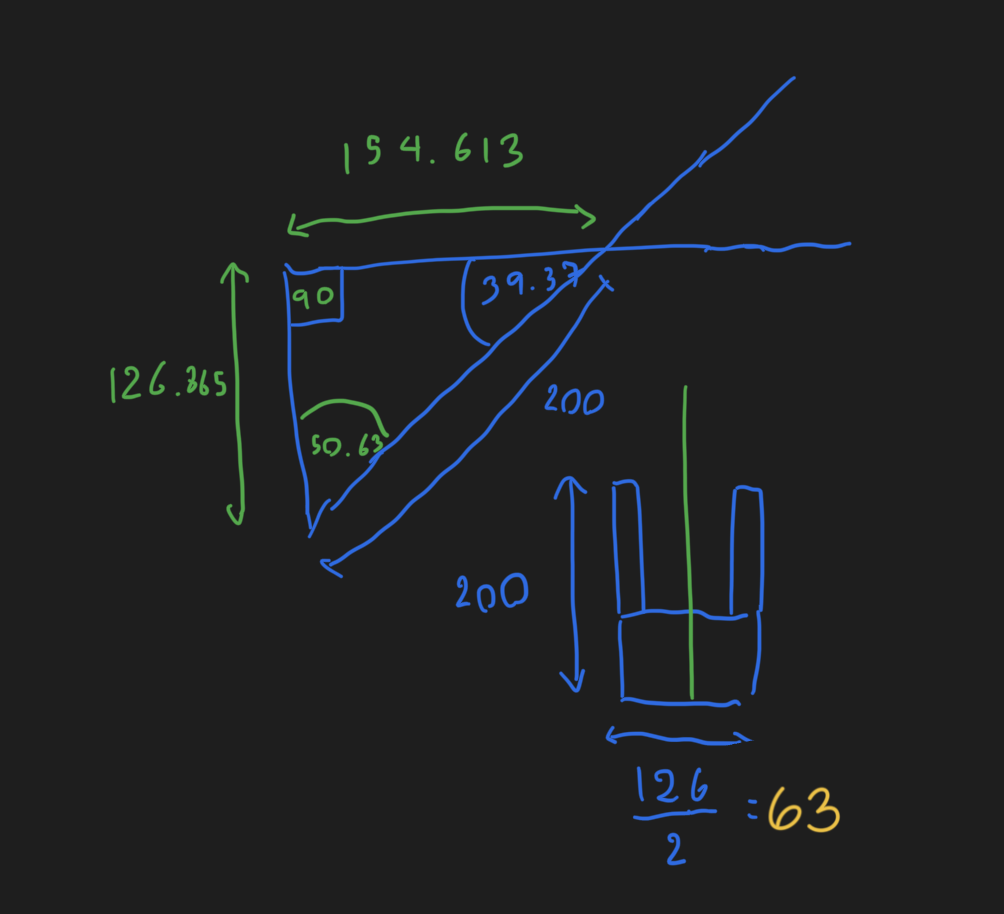 154.613
39.37
90
126.865
200
50.63
200
126
2
=63